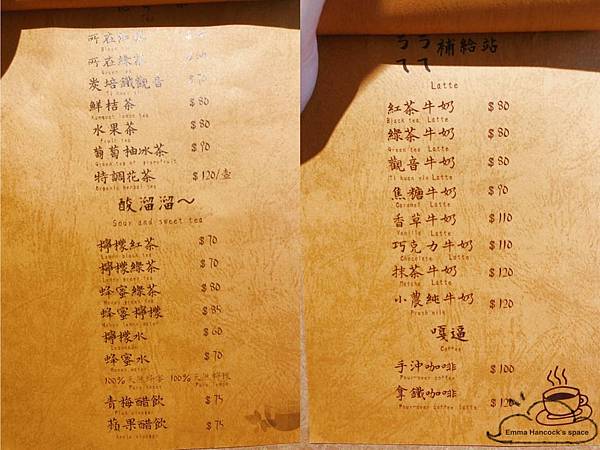 所在紅茶
所在綠茶
炭培鐵觀音 $70
鮮桔茶 $80
Kumquat lemon tea
水果茶 $80
Fruit tea
葡萄柚冰茶 $90
Green tea of grapefruit
特調花茶 $120/壺
Organic herbal tea
酸溜溜～
Sour and sweet tea
檸檬紅茶 $70
Lemon black tea
檸檬綠茶 $70
Lemon green tea
蜂蜜綠茶 $80
Honey green tea
蜂蜜檸檬 $85
Honey lemon water
檸檬水 $60
Lemonade
蜂蜜水 $70
Honey water
100%天然蜂蜜 100%天然檸檬
Pure honey Pure lemon
青梅醋飲 $75
Plum vinegar
蘋果醋飲 $75
Apple vinegar
ㄋㄋ補給站
ㄟㄟ
Latte
紅茶牛奶 $80
Black tea Latte
綠茶牛奶 $80
Green tea Latte
觀音牛奶 $80
Ti kuan yin Latte
焦糖牛奶 $90
Caramel Latte
香草牛奶 $110
Vanilla Latte
巧克力牛奶 $110
Chocolate Latte
抹茶牛奶 $120
Matcha Latte
小農純牛奶 $120
Fresh milk
嘎逼
Coffee
手沖咖啡 $100
Pour-over coffee
拿鐵咖啡 $120
Pour-over coffee latte
Emma Hancock's space